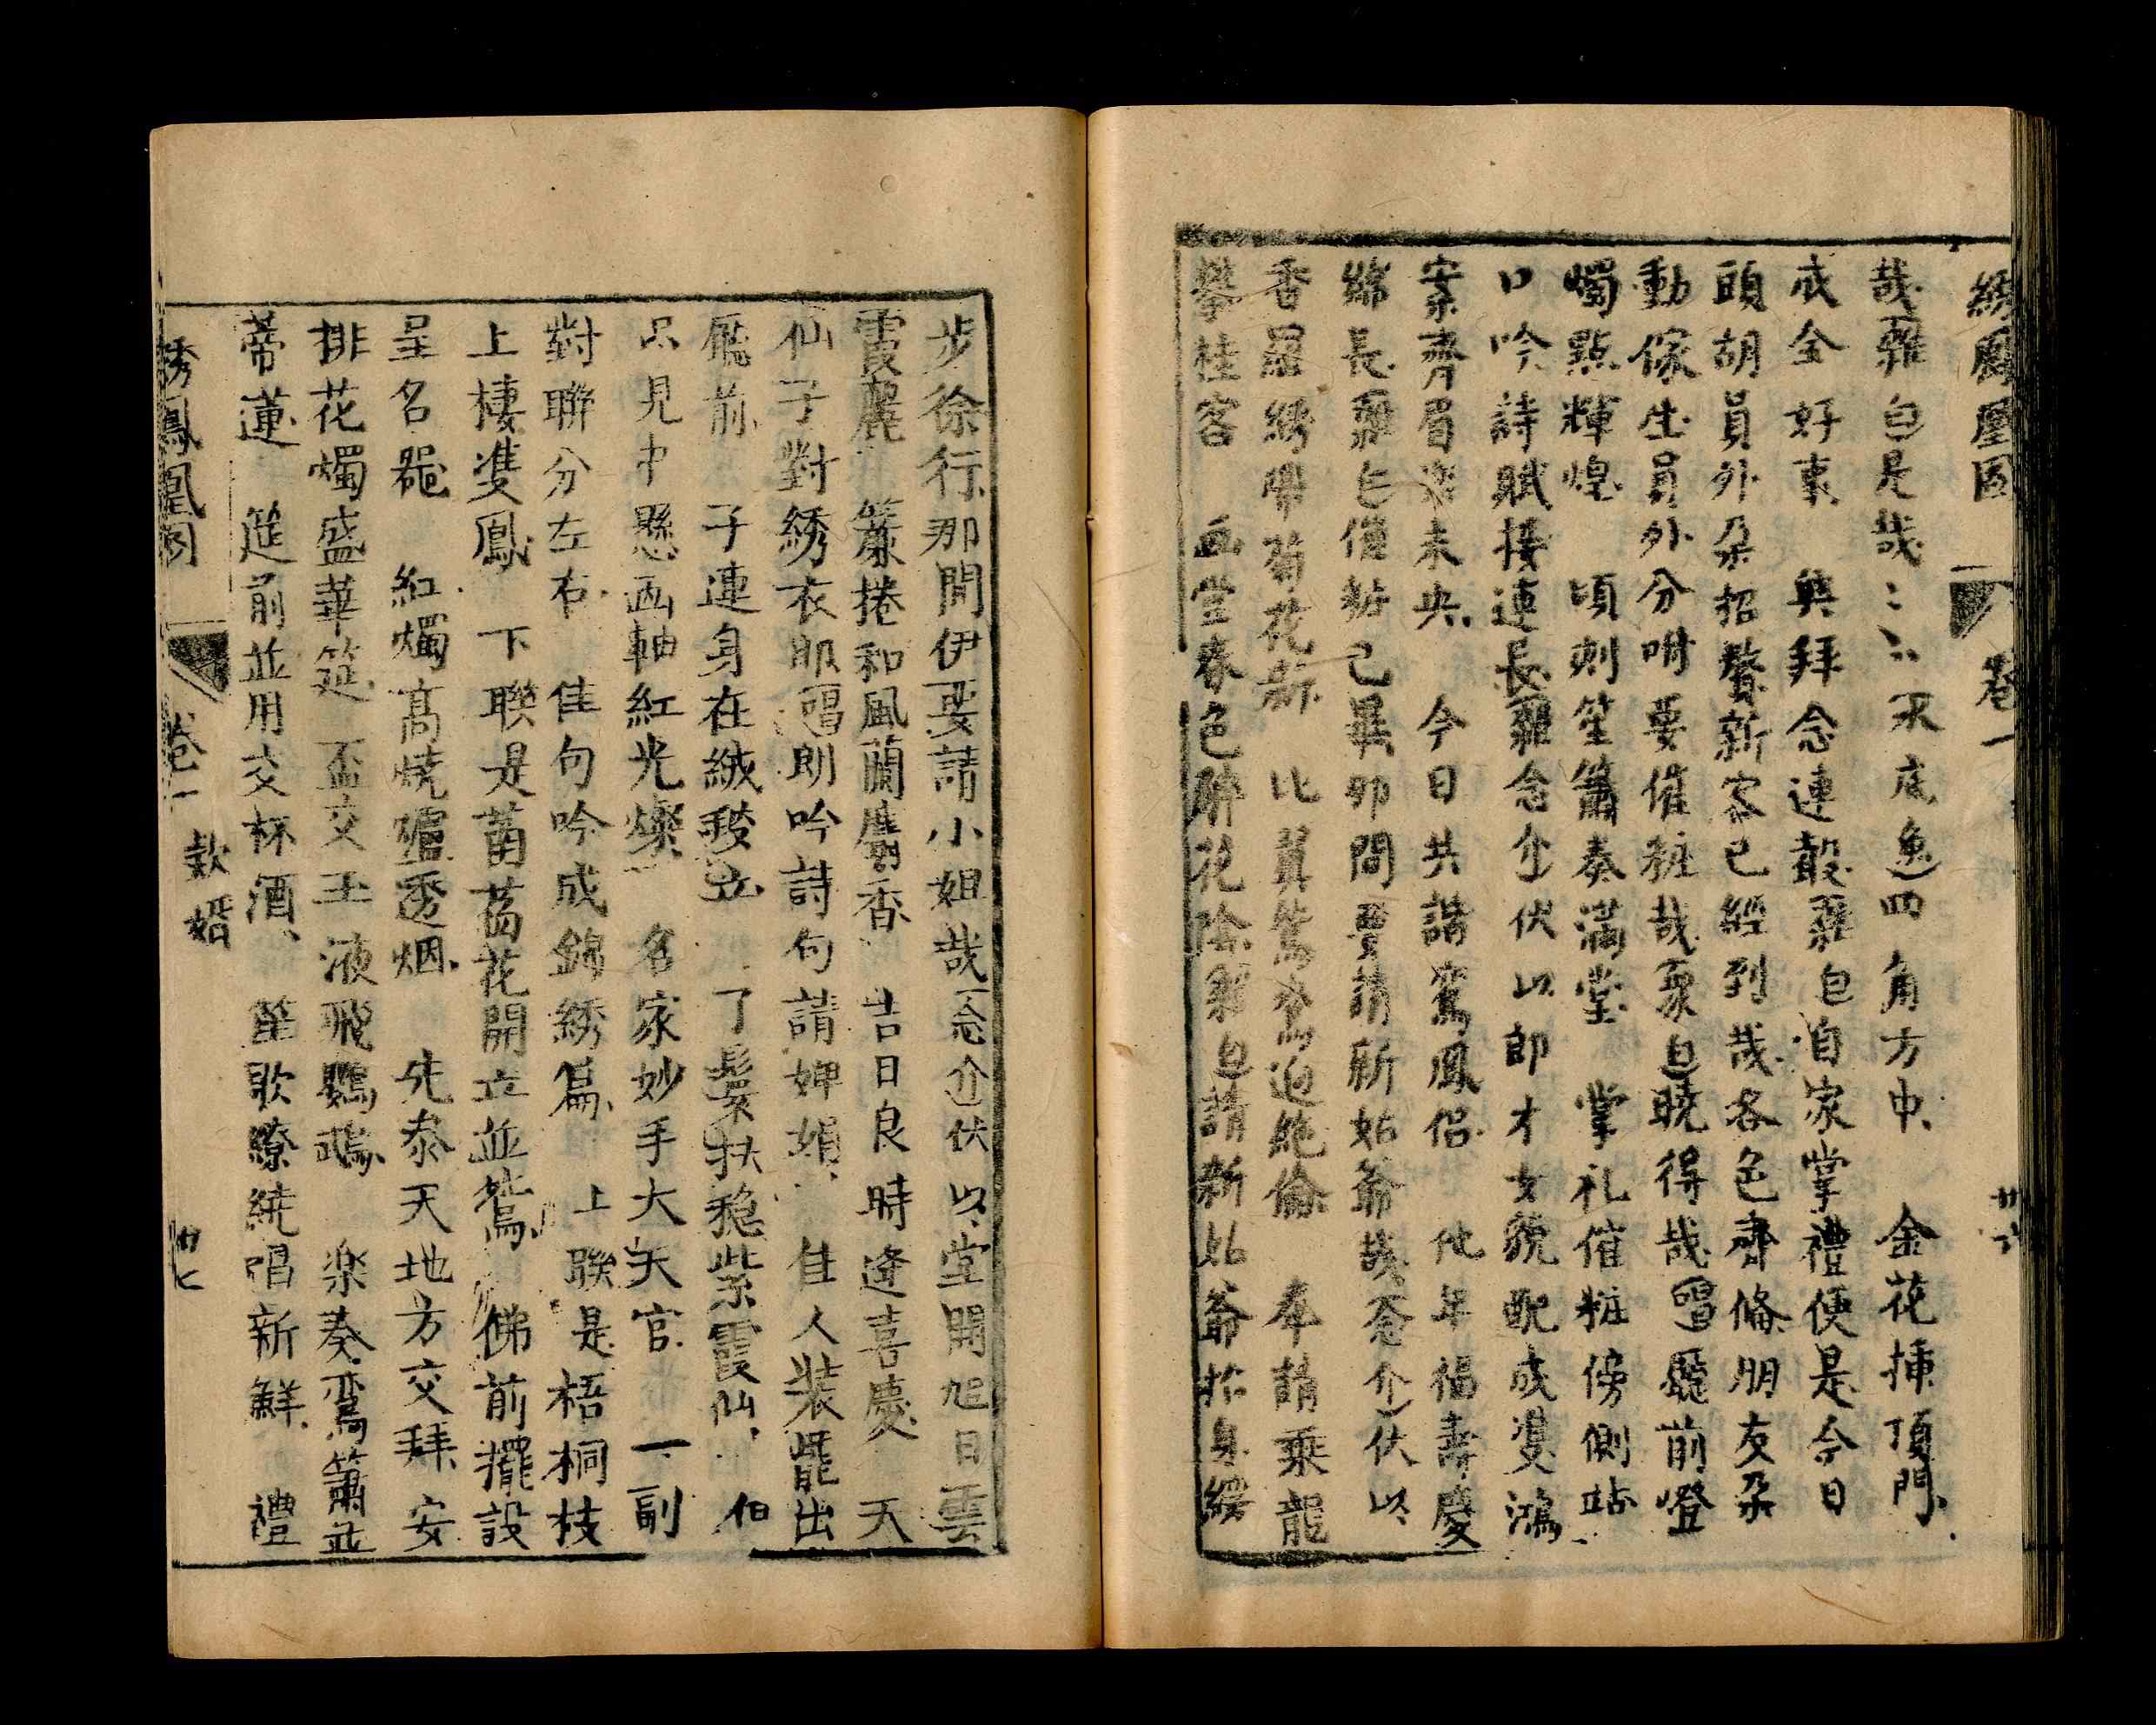 綉鳳凰圖 卷一 廿六
哉 白是哉 四角方中 金花揷頂門
成金好事 拜念連 白自家掌禮便是今日
頭胡員外朶招贅新客已經到哉各色齊俻朋友朶
動傢生員外分咐要催粧哉 白曉得哉唱廳前燈
燭點輝煌 頃刻笙簫奏滿堂 掌礼催粧傍側站
口吟詩賦接連長 念介伏以郎才女貌配成雙鴻
案齊眉樂未央 今日共諧鸞鳳侶 他年福壽慶
綿長 白催粧已畢 問要請新姑爺哉念介伏以
香羅綉帶菊花新 比翼鴛鴦迥絶倫 奉請乘龍
攀桂客 画堂春色醉花隂 白請新姑爺抬身緩
步徐行那間伊要請小姐哉念介伏以堂開旭日雲
霞麗 簾捲和風蘭麝香 吉日良時逢喜慶 天
仙子對綉衣郎唱朗吟詩句請婢娟 佳人裝罷出
廳前 子連身在絨毯立 了鬟扶穏紫霞仙 伯
只見中懸画軸紅光燦 名家妙手大天官 一副
對聯分左右 佳句吟成錦綉篇 上聯是梧桐枝
上棲隻鳳 下聯是菡萏花開立並鴛 佛前擺設
呈名器 紅燭高燒爐透烟 先泰天地方交拜 安
排花燭盛華筵 盃交玉液飛鸚鵡 楽奏鸞簫並
蒂蓮 筵前並用交杯酒 笙歌繚繞唱新鮮 禮
綉鳳凰圖 卷一 欵婿 廿七